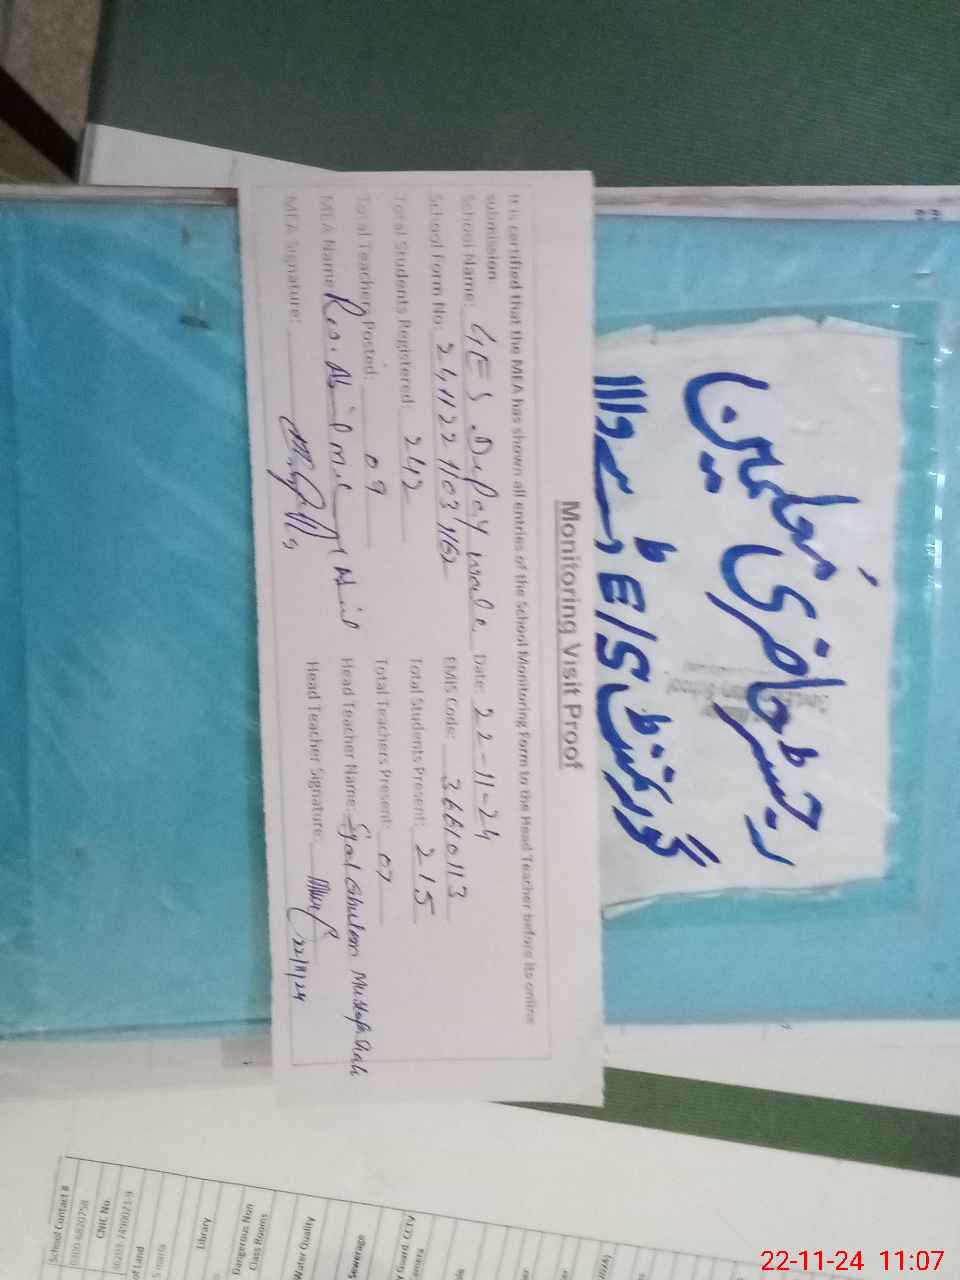 Monitoring Visit Proof
It is certified that the MEA has shown all entries of the School Monitoring Form to the Head Teacher before its online
submission.
School Name: GES Depay wala Date: 22-11-24
School Form No: EMIS Code: 36610113
Total Students Registered: 242 Total Students Present: 215
Total Teachers Posted: 09 Total Teachers Present: 07
MEA Name: Head Teacher Name: Syed Ghulam Mustafa Shah
MEA Signature: Head Teacher Signature: 22/11/24
رجسٹر حاضری معلمین
گورنمنٹ E/S
School Contact #
CNIC No.
of Land
Library
Dangerous Non
Class Rooms
Water Quality
Sewerage
y Guard, CCTV
amera
22-11-24 11:07